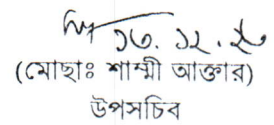 ১৩.১২.২০
(মোছাঃ শাম্মী আক্তার)
উপসচিব